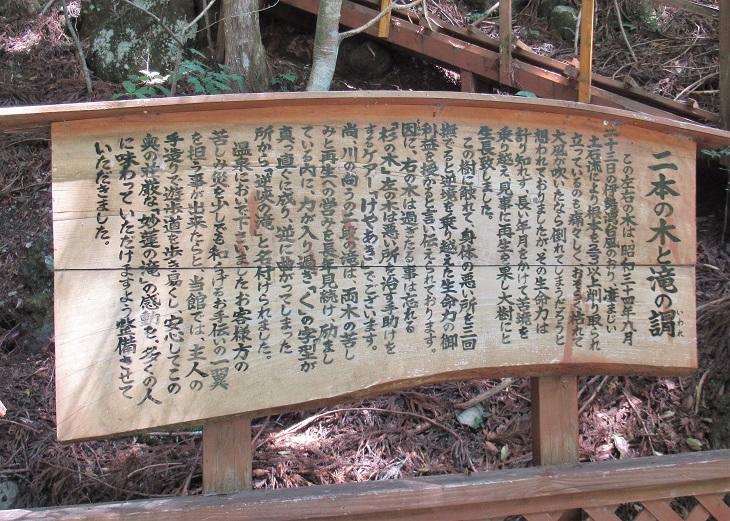 二本の木と滝の謂
いわれ
この左右の木は、昭和三十四年九月
二十三日の伊勢湾台風のおり、凄まじい
土石流により根本を三分の二以上削り取られ
立っているのも痛々しく、おそらく枯れて
大風が吹いたなら倒れてしまうだろうと
想われておりましたが、その生命力は
計り知れず、長い年月をかけて苦流を
乗り越え、見事に再生を果し大樹にと
生長致しました。
この樹に触れて、身体の悪い所を三回
撫でると逆境を乗り越えた生命力の御
利益を授かると言い伝えられております。
因に、右の木は過ぎたる事は忘れる
『杉の木』左の木は悪い所を治す手助けを
するケアー『けやあき』でございます。
尚、川の向うの二段の滝は、両木の苦し
みと再生への営みを長年見続け、励まし
ている内に、力が入り過ぎ「く」の字型が
真っ直ぐに成り、逆に曲がってしまった
所から『逆峡の滝』と名付けられました。
温泉においで下さいましたお客様方の
苦しみ災を少しでも和らげるお手伝いの一翼
を担う事が出来たらと、当館では、主人の
手造りで遊歩道を歩き易くし、安心してこの
奥の荘厳な『妙蓮の滝』の感動を、多くの人
に味わっていただけますよう整備させて
いただきました。